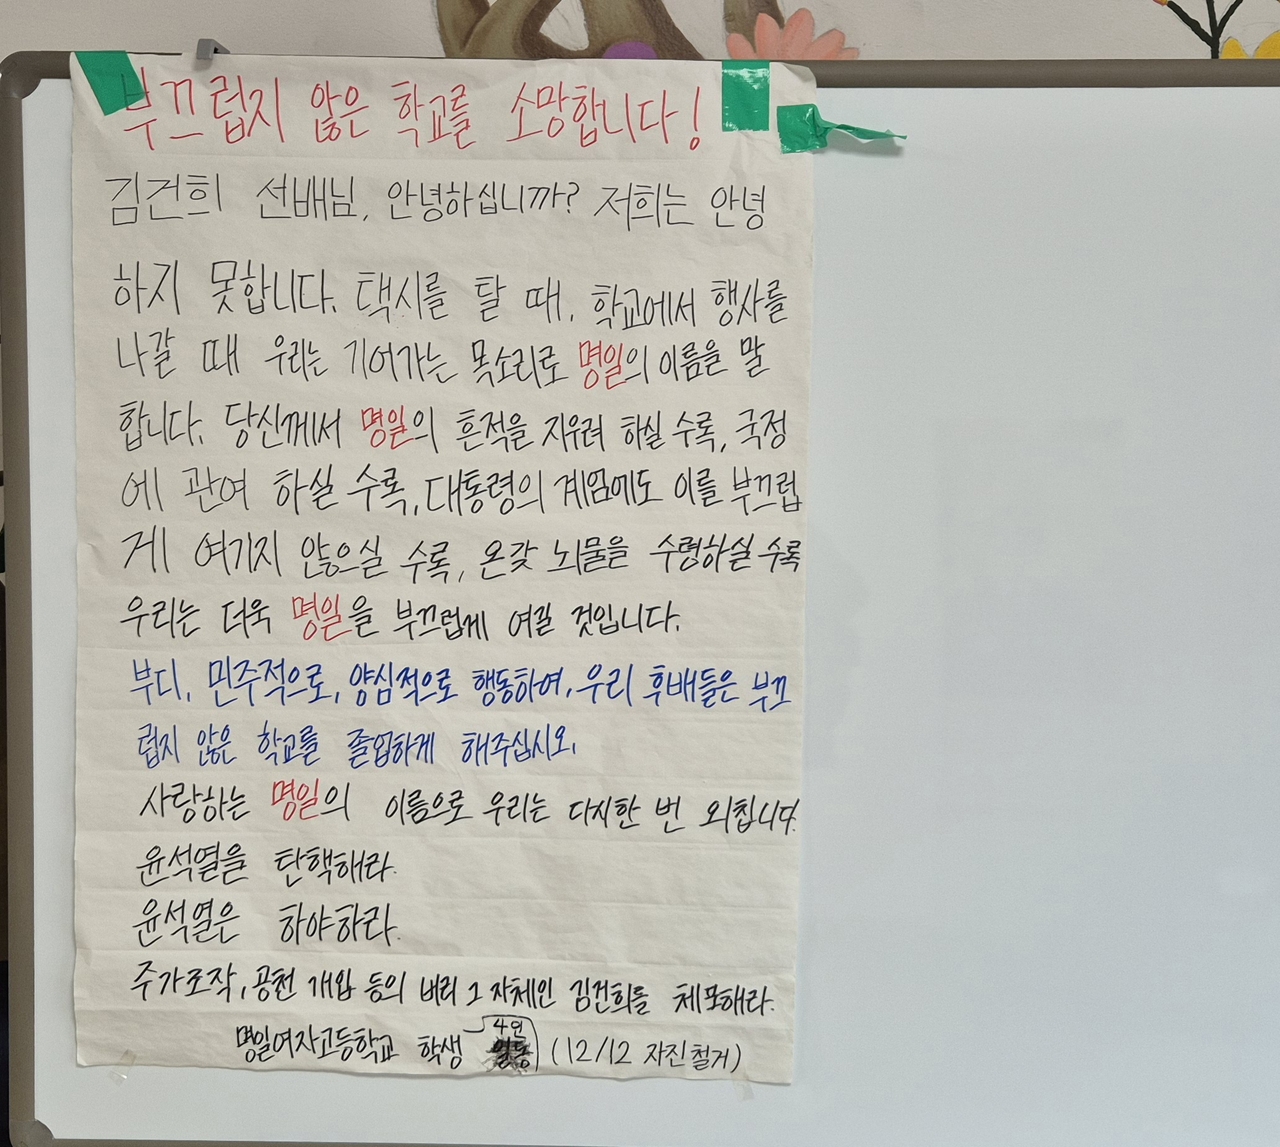 부끄럽지 않은 학교를 소망합니다!
김건희 선배님, 안녕하십니까? 저희는 안녕
하지 못합니다. 택시를 탈 때, 학교에서 행사를
나갈 때 우리는 기어가는 목소리로 명일의 이름을 말
합니다. 당신께서 명일의 흔적을 지우려 하실 수록, 국정
에 관여 하실 수록, 대통령의 계엄에도 이를 부끄럽
게 여기지 않으실 수록, 온갖 뇌물을 수령하실 수록
우리는 더욱 명일을 부끄럽게 여길 것입니다.
부디, 민주적으로, 양심적으로 행동하여, 우리 후배들은 부끄
럽지 않은 학교를 졸업하게 해주십시오.
사랑하는 명일의 이름으로 우리는 다시한 번 외칩니다.
윤석열을 탄핵해라.
윤석열은 하야하라.
주가조작, 공천 개입 등의 비리 그 자체인 김건희를 체포해라.
명일여자고등학교 학생 4인 (12/12 자진철거)